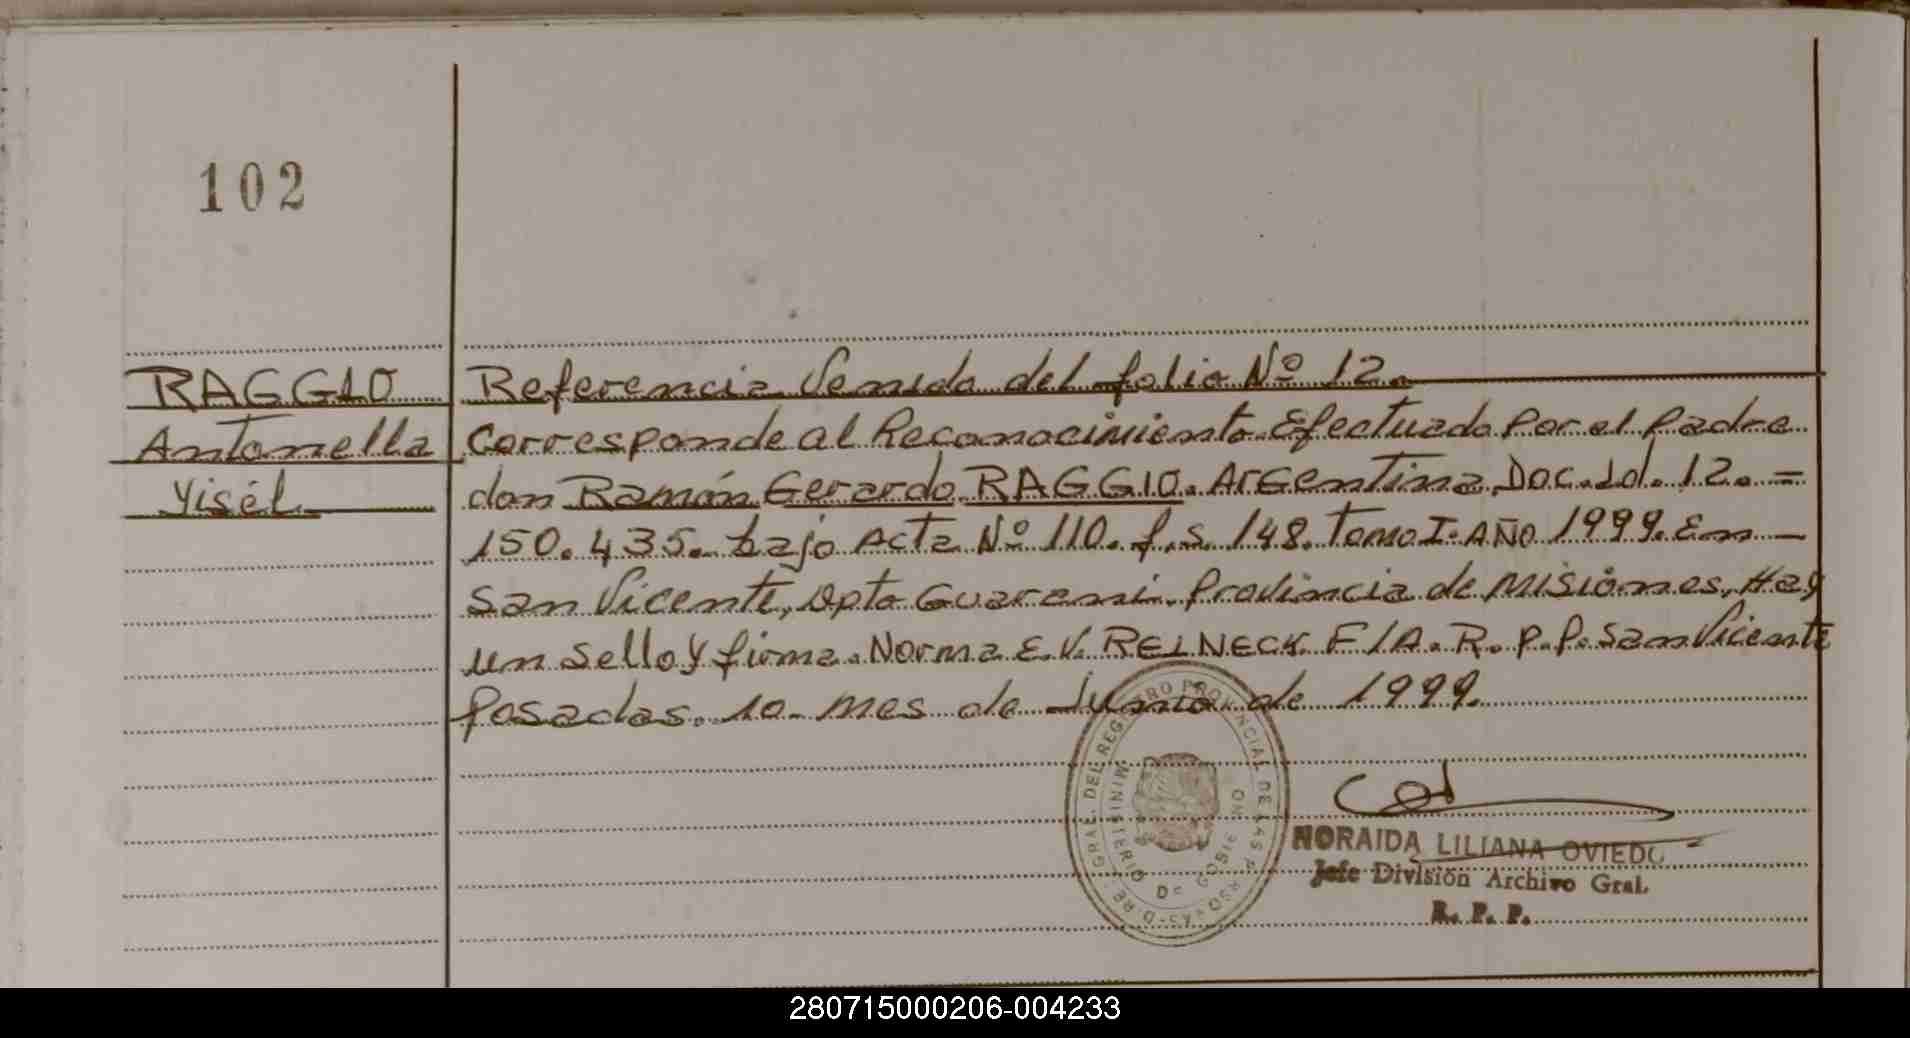 102
RAGGIO
Antonella
Yisél
Referencia Venida del folio Nº 12.
Corresponde al Reconocimiento Efectuado Por el Padre
don Ramón Gerardo RAGGIO. Argentina Doc. Id. 12. =
150.435. bajo Acta Nº 110. f.s. 148. Tomo I. AÑO 1999. En —
San Vicente, Dpto Guarani. Provincia de Misiones, Hay
un Sello y firma. Norma E.V. REINECK. F/A. R.P.P. San Vicente
Posadas. 10. mes de Junio de 1999.
GRAL. DEL REGISTRO PROVINCIAL DE LAS PERSONAS
MINISTERIO DE GOBIERNO
NORAIDA LILIANA OVIEDO
Jefe División Archivo Gral.
R. P. P.
280715000206-004233